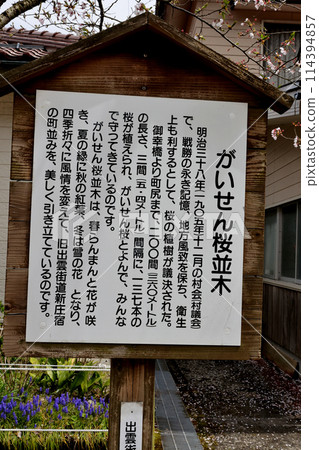 がいせん桜並木
明治三十八年一九〇五年十二月の村会村議会
で、戦勝の永き記憶、地方風致を保ち、衛生
上も利するとして、桜の植樹が議決された。
御幸橋より町尻まで、二〇〇間、三六〇メートル
の長さ、三間(五・四メートル)間隔に、一三七本の
桜が植えられ、がいせん桜とよんで、みんな
で守ってきているのです。
がいせん桜並木は、春らんまんと花が咲
き、夏の緑に秋の紅葉、冬は雪の花 となり、
四季折々に風情を変えて、旧出雲街道新庄宿
の町並みを、美しく引き立てているのです。
出雲街
114394857